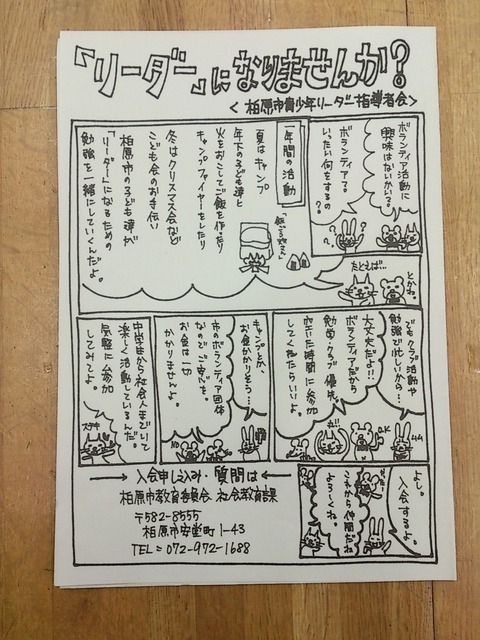 「リーダー」になりませんか?
<柏原市青少年リーダー指導者会>
ボランティア活動に
興味はないかい?
ボランティア?
いったい何をするの
?
とかね。
たとえば…
一年間の活動
夏はキャンプ
年下の子ども達と
火をおこしてご飯を作ったり
キャンプファイヤーをしたり
冬はクリスマス会など
こども会のお手伝い
柏原市の子ども達が
「リーダー」になるための
勉強を一緒にしていくんだよ。
でもクラブ活動や
勉強で忙しいかの…
大丈夫だよ!!
ボランティアだから
勉学・クラブ優先。
空いた時間に参加
してくれたらいいよ。
O.K
キャンプとか、
お金かかりそう…
市のボランティア団体
なのでご安心を。
お金は一切
かかりませんよ。
NO
中学生から社会人までいて
楽しく活動しているんだ。
気軽に参加
してみてよ。
ステキ
よし。
入会するよ。
これから仲間だね
よろしくね。
入会申し込み・質問は
柏原市教育委員会 社会教育課
〒582-8555
柏原市安堂町1-43
TEL=072-972-1688